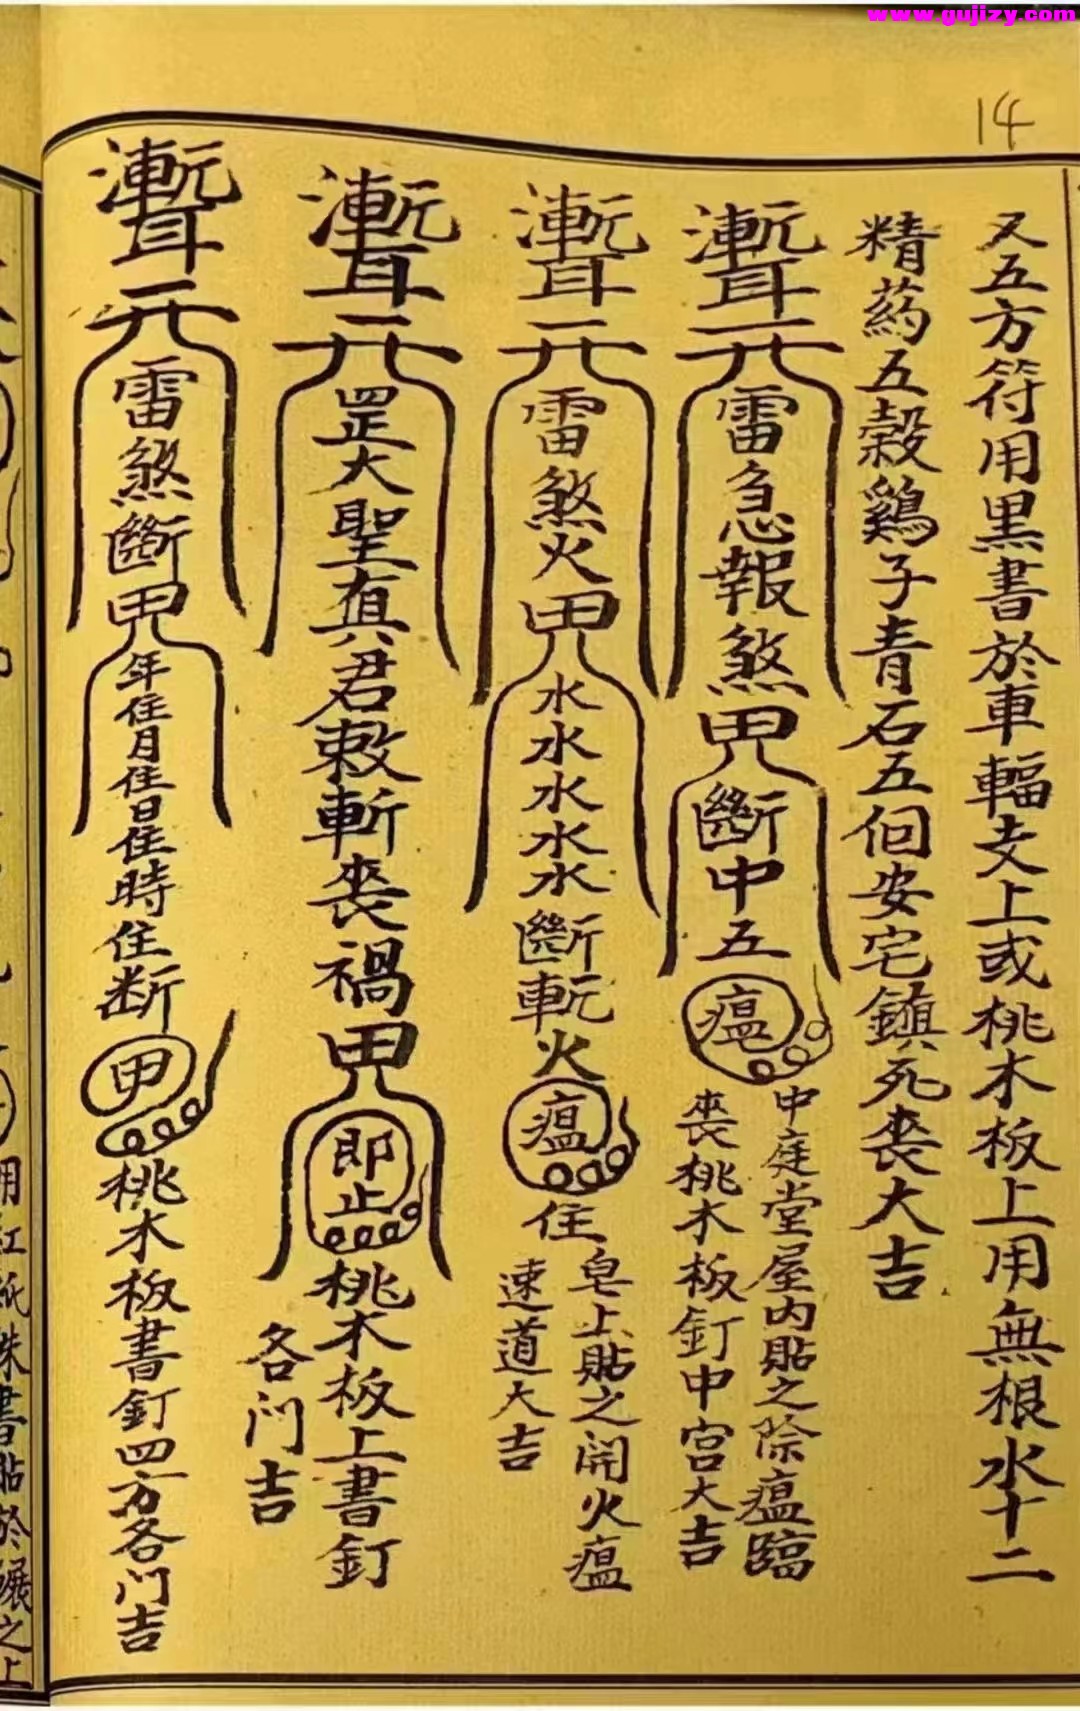 www.gujizy.com
14
又五方符用黑書於車輻支上或桃木板上用無根水十二
精药五穀鷄子青石五個安宅鎮死丧大吉
雷急報煞
斷中五
瘟
中庭堂屋内貼之除瘟臨
丧桃木板釘中宮大吉
雷煞火
水水水水水斷
火
瘟
住
皂上貼之開火瘟
速道大吉
罡大聖真君敕斬丧禍
即止
桃木板上書釘
各门吉
雷煞斷
年住月住日住時住断
甲
桃木板書釘四方各门吉
用紅紙硃書貼於碾之上